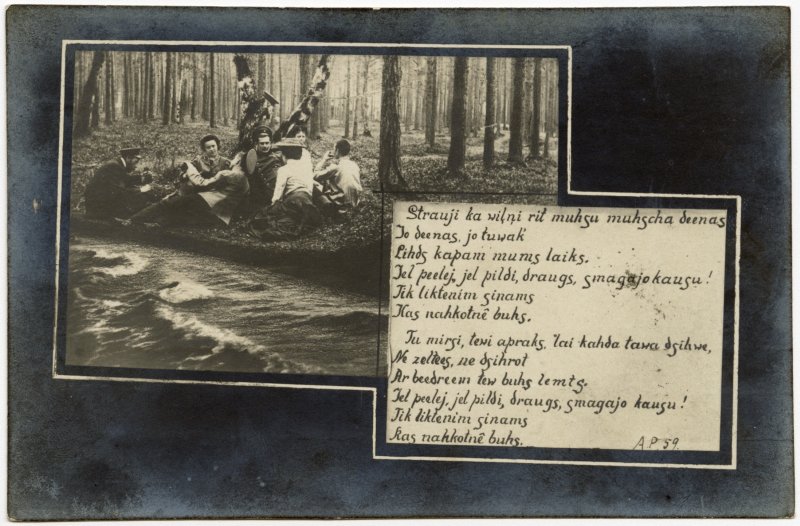 Strauji ka wiļņi rit muhsu muhscha deenas
Jo deenas, jo tuwak
Lihds kapam mums laiks.
Jel peelej, jel pildi, draugs, smagajo kausu!
Tik liktenim sinams
Kas nahkotnê buhs.
Tu mirsi, tewi apraks, lai kahda tawa dsihwe,
Ne zeltees, ne dsihrot
Ar beedreem tew buhs lemts.
Jel peelej, jel pildi, draugs, smagajo kausu!
Tik liktenim sinams
Kas nahkotnê buhs.
A.P. 59.